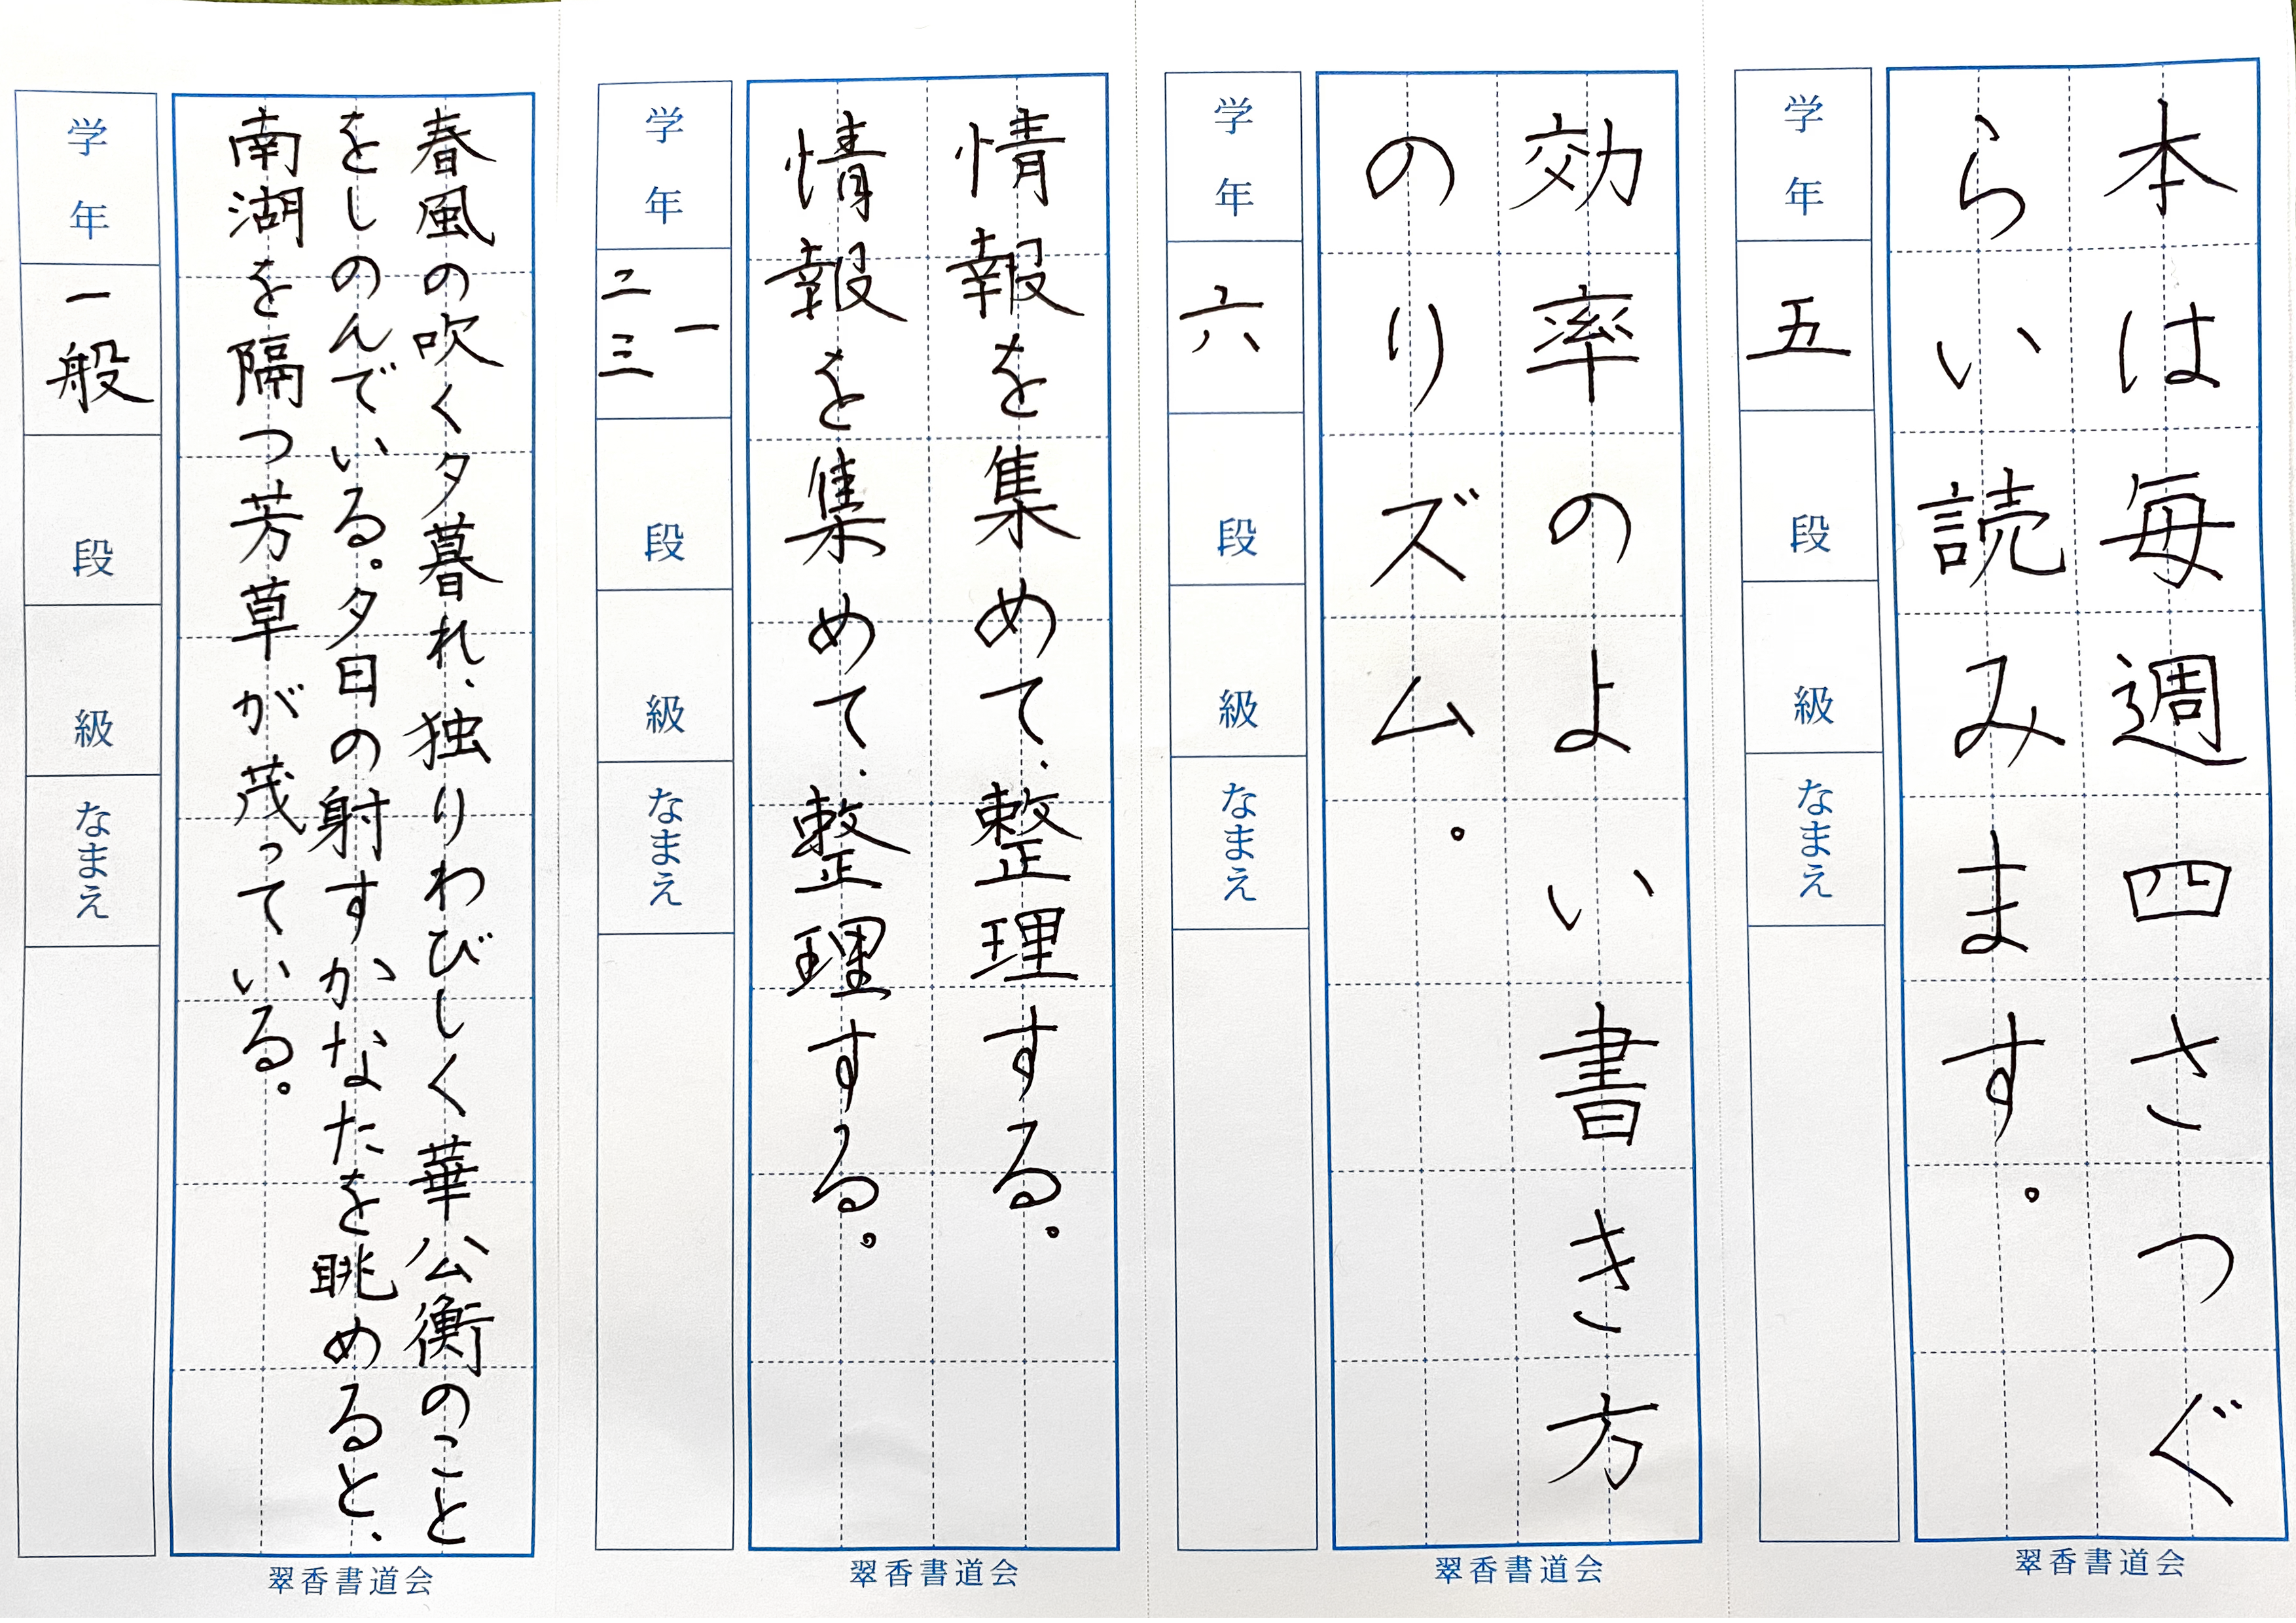 本は毎週四さつぐ
らい読みます。
学年
五
段
級
なまえ
翠香書道会
効率のよい書き方
のりズム。
学年
六
段
級
なまえ
翠香書道会
情報を集めて、整理する。
情報を集めて、整理する。
学年
一
二三
段
級
なまえ
翠香書道会
春風の吹く夕暮れ、独りわびしく華公衡のこと
をしのんでいる。夕日の射すかなたを眺めると、
南湖を隔つ芳草が茂っている。
学年
一般
段
級
なまえ
翠香書道会